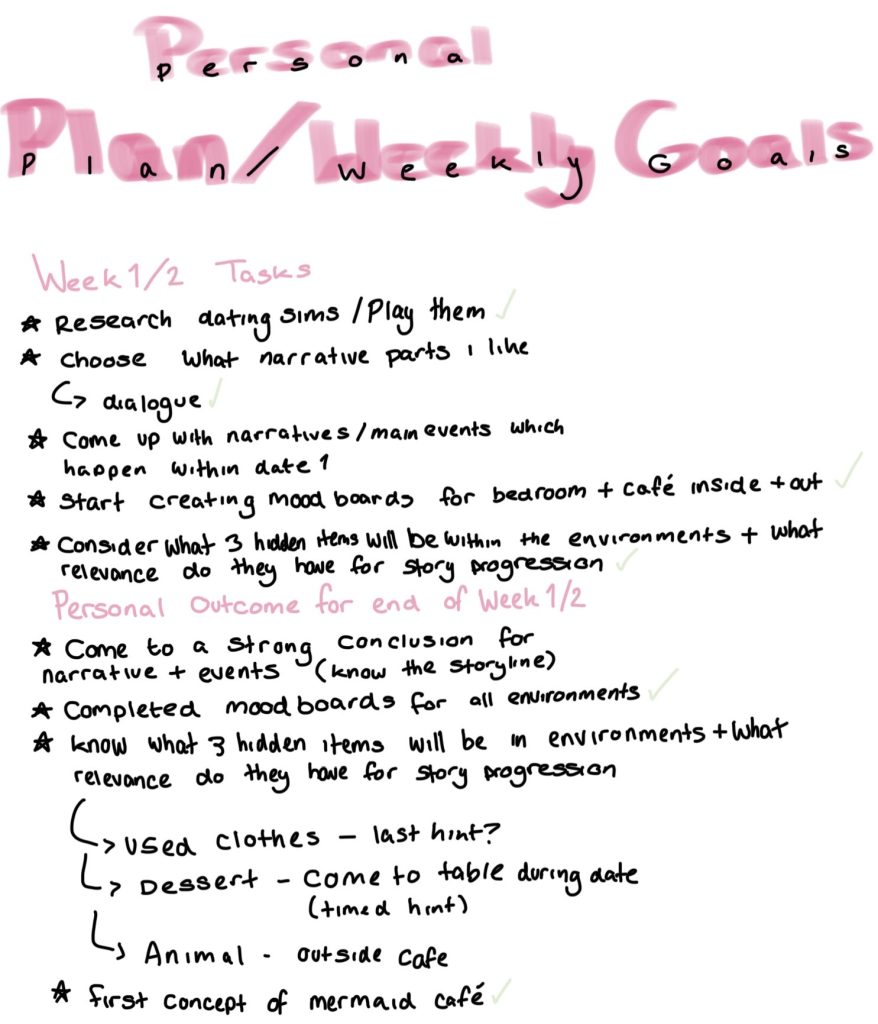 Personal
Plan/Weekly Goals
Week 1/2 Tasks
Research dating sims / Play them
Choose what narrative parts i like
dialogue
Come up with narratives/main events which
happen within date 1
Start creating mood boards for bedroom + café inside + out
Consider what 3 hidden items will be within the environments + what
relevance do they have for story progression
Personal Outcome for end of Week 1/2
Come to a strong conclusion for
narrative + events (know the storyline)
Completed mood boards for all environments
know what 3 hidden items will be in environments + what
relevance do they have for story progression
used clothes - last hint?
Dessert - come to table during date
(timed hint)
Animal - outside cafe
first concept of mermaid café